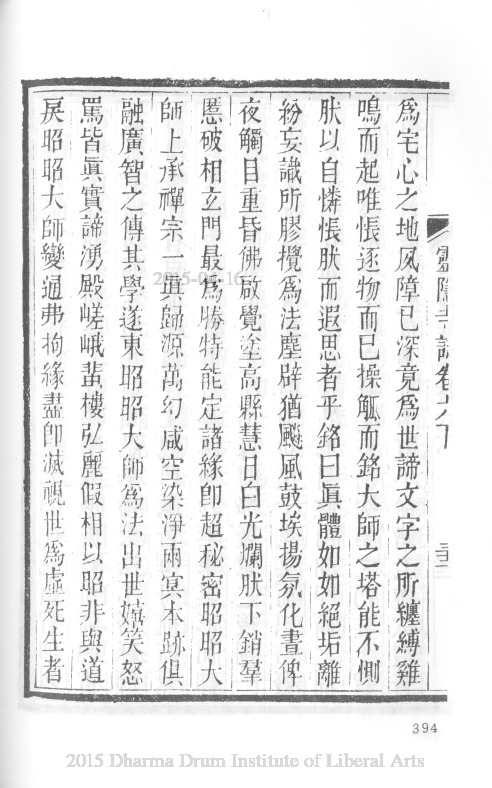 靈隱寺誌卷六下
爲宅心之地夙障已深竟爲世諦文字之所纏縛雞
鳴而起唯悵逐物而已操觚而銘大師之塔能不惻
肰以自憐悵肰而遐思者乎銘曰眞體如如絕垢離
紛妄識所膠攪爲法塵辟猶飈風鼓埃揚氛化晝俾
夜觸目重昏佛啟覺塗高縣慧日白光爛肰下銷羣
慝破相立門最爲勝特能定諸緣卽超秘密昭昭大
師上承禪宗一眞歸源萬幻咸空染淨兩冥本跡俱
融廣智之傳其學遂東昭昭大師爲法出世嬉笑怒
罵皆眞實諦湧殿嵯峨蜚樓弘麗假相以昭非與道
戾昭昭大師變通弗拘緣盡卽滅視世爲虛死生者
394
2015 Dharma Drum Institute of Liberal Arts